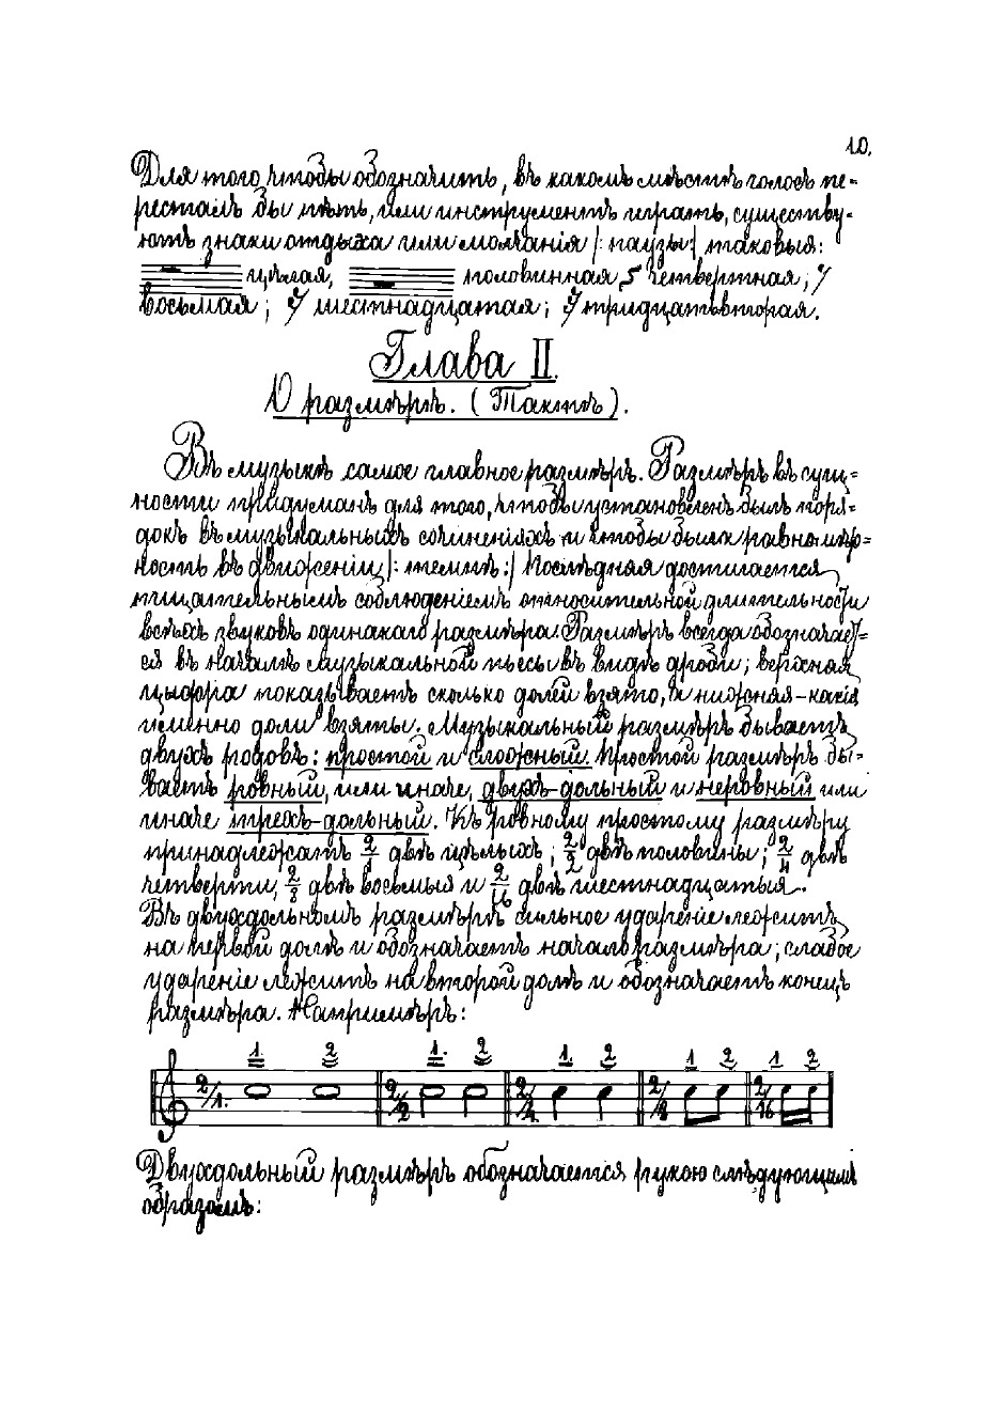 10.
Для того, чтобы обозначить, въ какомъ мѣстѣ голосъ пе-
ресталъ бы пѣть, или инструментъ играть, существу-
ютъ знаки отдыха или молчанія |: паузы :| таковыя:
цѣлая, половинная, четвертная;
восьмая; шестнадцатая; тридцатьвторая.
Глава II.
О размѣрѣ. (Тактѣ).
Въ музыкѣ самое главное размѣръ. Размѣръ въ сущ-
ности придуманъ для того, чтобы установленъ былъ поря-
докъ въ музыкальныхъ сочиненіяхъ и чтобы была равномѣр-
ность въ движеніи |: темпѣ :| Послѣдняя достигается
тщательнымъ соблюденіемъ относительной длительности
всѣхъ звуковъ одинакаго размѣра. Размѣръ всегда обозначает-
ся въ началѣ музыкальной пьесы въ видѣ дроби; верхняя
цыфра показываетъ сколько долей взято, а нижняя - какія
именно доли взяты. Музыкальный размѣръ бываетъ
двухъ родовъ: простой и сложный. Простой размѣръ бы-
ваетъ ровный, или иначе, двухъ-дольный и неровный или
иначе трехъ-дольный. Къ ровному простому размѣру
принадлежатъ 2/1 двѣ цѣлыхъ; 2/2 двѣ половины; 2/4 двѣ
четверти, 2/8 двѣ восьмыя и 2/16 двѣ шестнадцатыя.
Въ двухдольномъ размѣрѣ сильное удареніе лежитъ
на первой долѣ и обозначаетъ начало размѣра; слабое
удареніе лежитъ на второй долѣ и обозначаетъ конецъ
размѣра. Напримѣръ:
1. 2 1. 2 1. 2 1 2 1 2
2/1. 2/2 2/4 2/8 2/16
Двухдольный размѣръ обозначается рукою слѣдующимъ
образомъ: